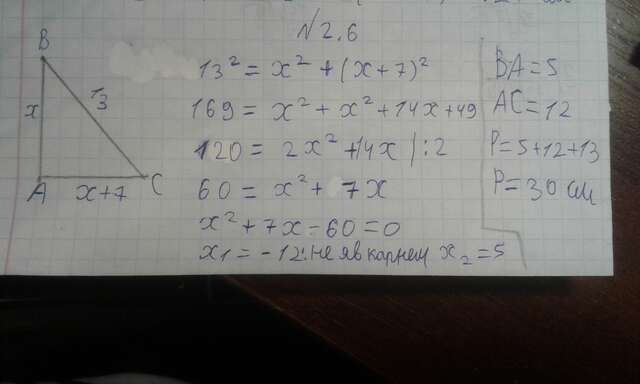 A x B
x+7 13
C
N2.6
13² = x² + (x+7)²
169 = x² + x² + 14x + 49
120 = 2x² + 14x | :2
60 = x² + 7x
x² + 7x - 60 = 0
x₁ = -12; не яв корнем x₂ = 5
BA = 5
AC = 12
P = 5+12+13
P = 30 см